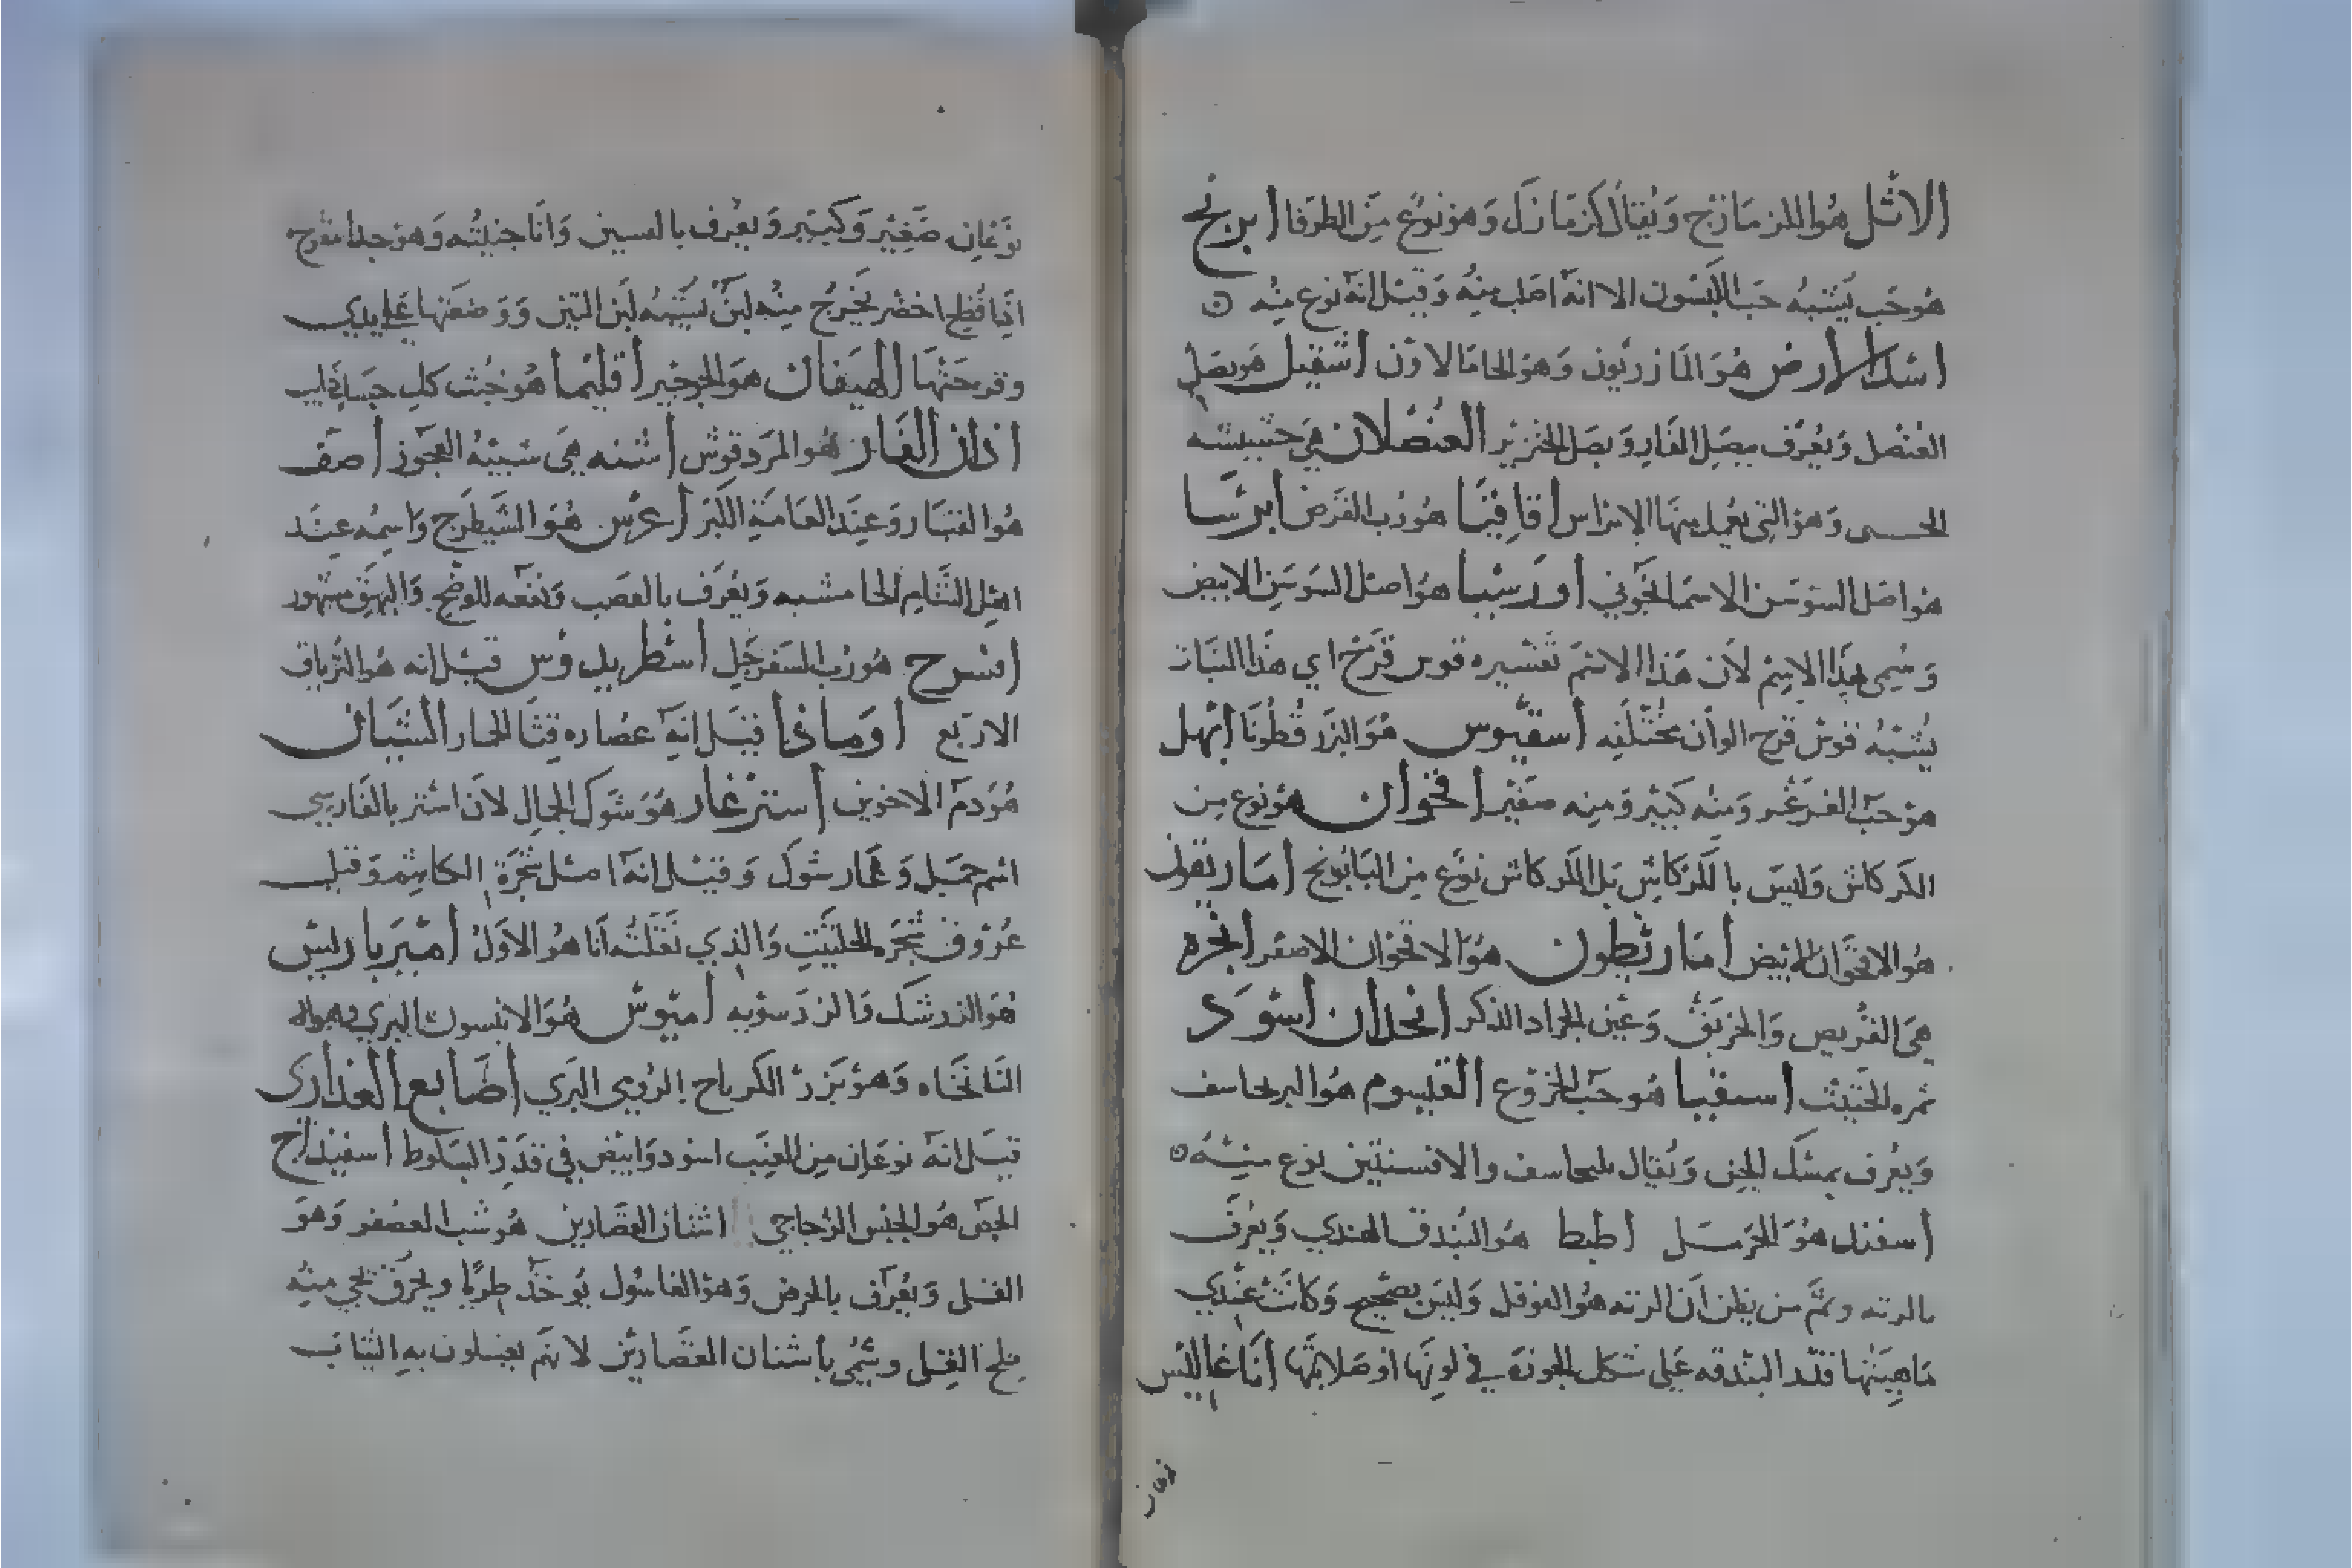 الاثل هو الكزمازج ويقال كزمازك وهو نوع من الطرفا ابرنج
هو حب يشبه حب البلسون الا انه اصلب منه وقيل انه نوع منه
اسد الارض هو المازريون وهو الحامالاون اشقيل هو بصل
العنصل ويعرف ببصل الفار وبصل الخنزير العنصلان هي حشيشه
الخنثى وهو التي يعمل منها الاشراس اقاقيا هو رب القرض ايرسا
هو اصل السوسن الاسمانجوني اورسيا هو اصل السوسن الابيض
وسمي بهذا الاسم لان هذا الاسم تفسيره قوس قزح اي هذا النبات
يشبه قوس قزح الوان مختلفه اسفيوس هو البزر قطونا ابهل
هو حب العرعر ومنه كبير ومنه صغير اقحوان هو نوع من
الكركاش وليس بالكركاش بل الكركاش نوع من البابونج امارنقون
هو الاقحوان الابيض امارنطون هو الاقحوان الاصفر انجره
هي القريص والحريق وعين الجراد الذكر انجدان اسود
ثمره الحلتيت اسفيا هو حب الخروع القيسوم هو البرنجاسف
ويعرف بمسك الجن ويقال بلنجاسف والافسنتين نوع منه
اسفند هو الحرمل اطبط هو البندق الهندي ويعرف
بالرته وثم من يظن ان الرته هو الفوفل وليس بصحيح وكانت عندي
ماهيتها قدر البندقه على شكل الجوزه في لونها او صلابتها اناغاليس
نوعان
نوعان صغير وكبير ويعرف بالعسين وانا جنيته وهو جدا مقرح
اذا قطع اخضر يخرج منه لبن يشبه لبن التين ووضعتها على يدي
وقرحتها الهيفان هو الجرجير اقليميا هو خبث كل جسد
اذان الفار هو المردقوش اشنه هي شيبة العجوز اصف
هو القبار وعند العامة الكبر اعرس هو الشيطرج واسمه عند
اهل الشام الحامشه ويعرف بالعصب ونفعه للوضح والبهق مشهور
امسرح هو رب السفرجل اسطريلوس قيل انه هو الترياق
الاربع اوماذا قيل انه عصاره قثا الحمار الشيان
هو دم الاخوين استرغار هو شوك الجمال لان اشتر بالفارسي
اسم جمل وغار شوك وقيل انه اصل شجرة الكاشم وقيل
عروق شجره الحلتيت والذي نقلته انا هو الاول امبرباريس
هو الزرشك والزرسويه اميوس هو الانيسون البري وهو
النانخاه وهو بزر الكرباح الرومي البري اصابع العذارى
قيل انه نوعان من العنب اسود وابيض في قدر البلوط اسفيداج
الجص هو الجبس الزجاجي اشنان القصارين هو شب العصفر وهو
القلى ويعرف بالحرض وهو الغاسول يوخذ طريا ويحرق يجي منه
ملح القلى ويسمى بأشنان القصارين لانهم يغسلون به الثياب